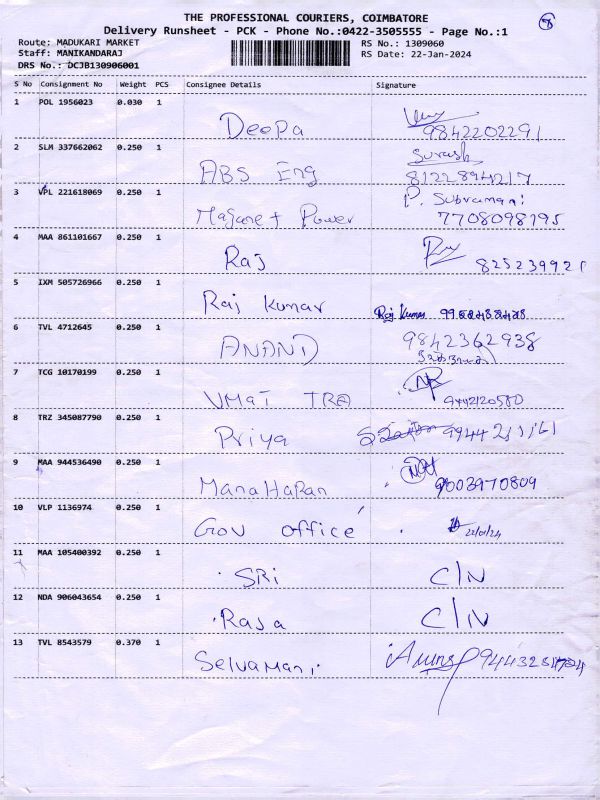 THE PROFESSIONAL COURIERS, COIMBATORE
Delivery Runsheet - PCK - Phone No.:0422-3505555 - Page No.:1
Route: MADUKARI MARKET
RS No.: 1309060
Staff: MANIKANDARAJ
RS Date: 22-Jan-2024
DRS No.: DCJB130906001
S No Consignment No Weight PCS Consignee Details Signature
1 POL 1956023 0.030 1
Deepa 9842202291
2 SLM 337662062 0.250 1
Surash
ABS Eng 8122894217
3 VPL 221618069 0.250 1
P. Subramani
Maganet Power 7708098195
4 MAA 861101667 0.250 1
Raj 825239921
5 IXM 505726966 0.250 1
Raj Kumar Raj Kumar
6 TVL 4712645 0.250 1
ANAND 9842362938
7 TCG 10170199 0.250 1
VMat TRa 9442120580
8 TRZ 345087790 0.250 1
Priya
9 MAA 944536490 0.250 1
ManaHaran 9003970809
10 VLP 1136974 0.250 1
Gov office 22/01/24
11 MAA 105400392 0.250 1
SRi C/N
12 NDA 906043654 0.250 1
Rasa C/N
13 TVL 8543579 0.370 1
Selvamani